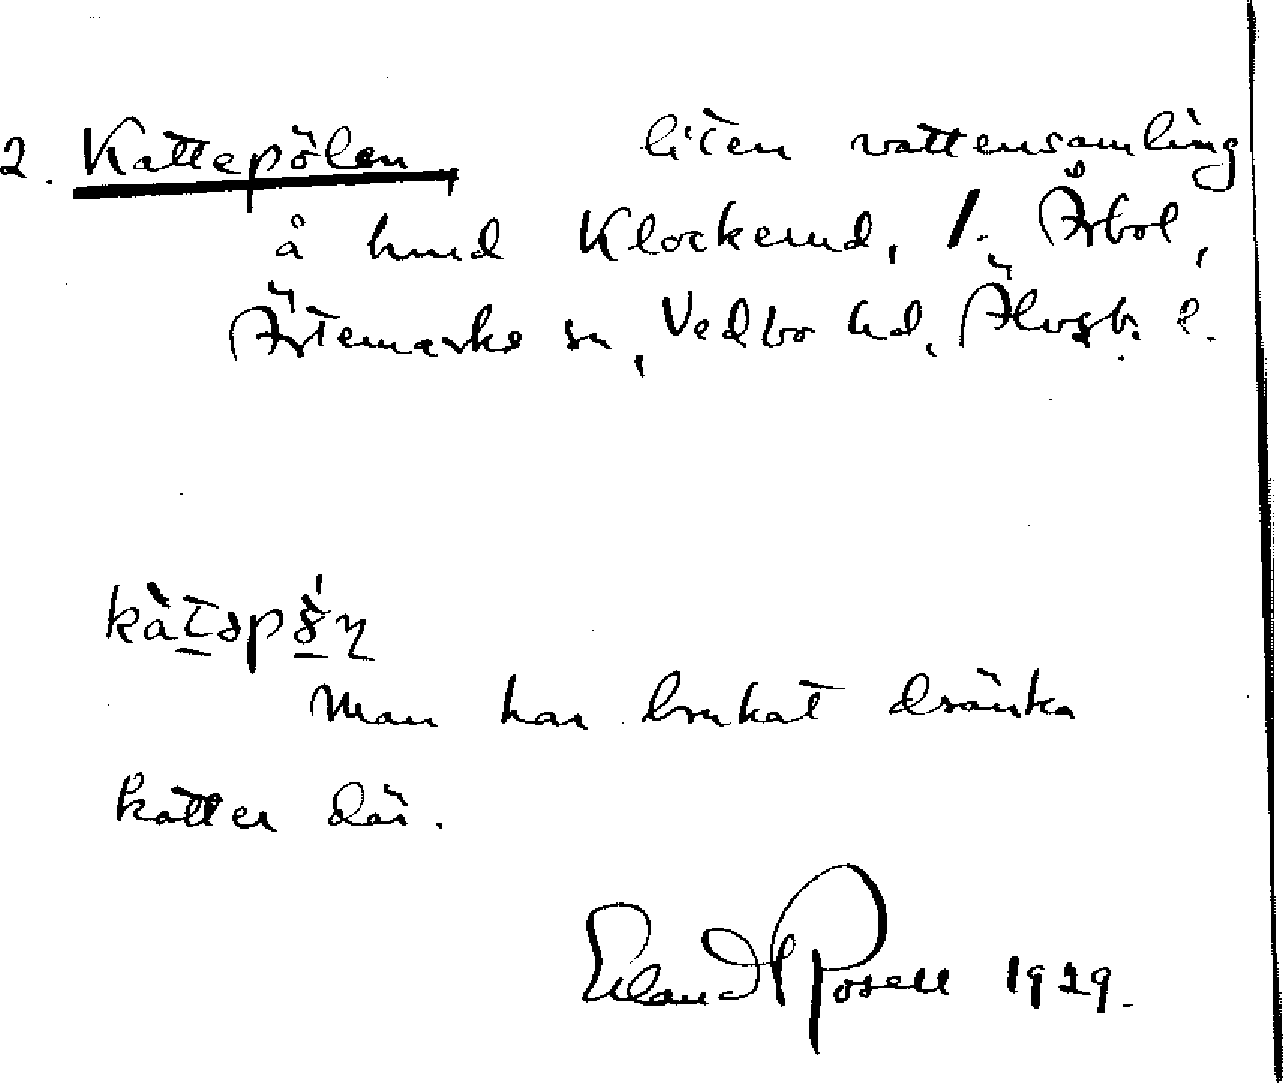 2. Kattepölen liten vattensamling
å hmd Klockerud, 1. Årbol,
Ärtemarks sn, Vedbo hd, Älvsb. l.
Man har brukat dränka
katter där.
Erland Rosell 1929.